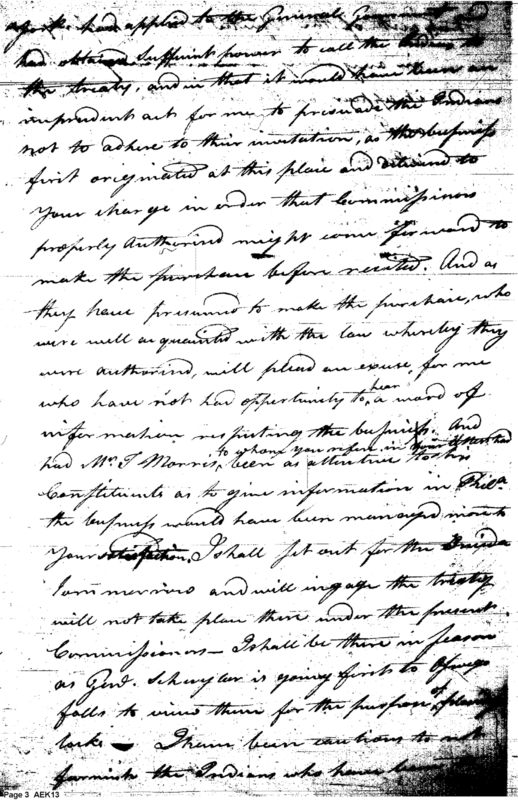 York had applied to the General Government and
had obtained sufficint power to call the Indians to
the treaty, and in that it would have been an
imprudent act for me to prisuade the Indians
not to adhere to their invitation, as the business
first originated at this place and delivered to
your charge in order that Commissinors
properly Authorind might come forward to
make the purchase before recited. And as
they have presumed to make the purchase, who
were well acquainted with the law whereby they
were authorind, will plead an excuse, for me
who have not had opportunity to hear a word of
information respecting the business. And
had Mr. T Morris, to whom you refer in your letter had
been as attentive to his
Constituents as to give information in Phila.
the business would have been managed much
your satisfaction, I shall set out for the Oneida
tommorrow and will ingage the treaty
will not take place there under the present
Commissioners — I shall be there in season
as Genl. Schuyler is going first to Oswego
falls to view them for the purpose of
locks — I have been cautious to not
furnish the Indians who have
Page 3 AEK13